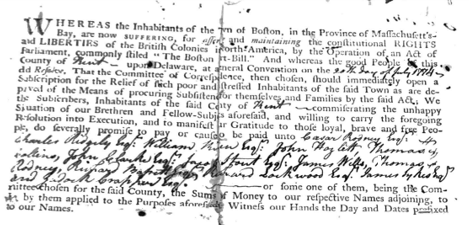 WHEREAS the Inhabitants of the Town of Boston, in the Province of Massachusett's-
Bay, are now SUFFERING, for asserting and maintaining the constitutional RIGHTS
and LIBERTIES of the British Colonies in North-America, by the Operation of an Act of
Parliament, commonly stiled "The Boston Port-Bill." And whereas the good People of this
County of Kent upon Delaware, at a general Convention on the 20th Day of July 1774
did Resolve, That the Committee of Correspondence, then chosen, should immediately open a
Subscription for the Relief of such poor and distressed Inhabitants of the said Town as are de-
prived of the Means of procuring Subsistence for themselves and Families by the said Act, We
the Subscribers, Inhabitants of the said County of Kent commiserating the unhappy
Situation of our Brethren and Fellow-Subjects aforesaid, and willing to carry the foregoing
Resolution into Execution, and to manifest our Gratitude to those loyal, brave and free Peo-
ple, do severally promise to pay or cause to be paid unto Caesar Rodney Esqr.
Charles Ridgely Esqr. William Killen Esqr. John Haslett Thomas
Collins, John Clarke Esqr. Jacob Stout Esqr. James Wells, Thomas
Rodney Esqr. Richard Lockwood Esqr. James Sykes Esqr.
and Zadok Crapper Esqr. or some one of them, being the Com-
mittee chosen for the said County, the Sums of Money to our respective Names adjoining, to
by them applied to the Purposes aforesaid. Witness our Hands the Day and Dates prefixed
to our Names.